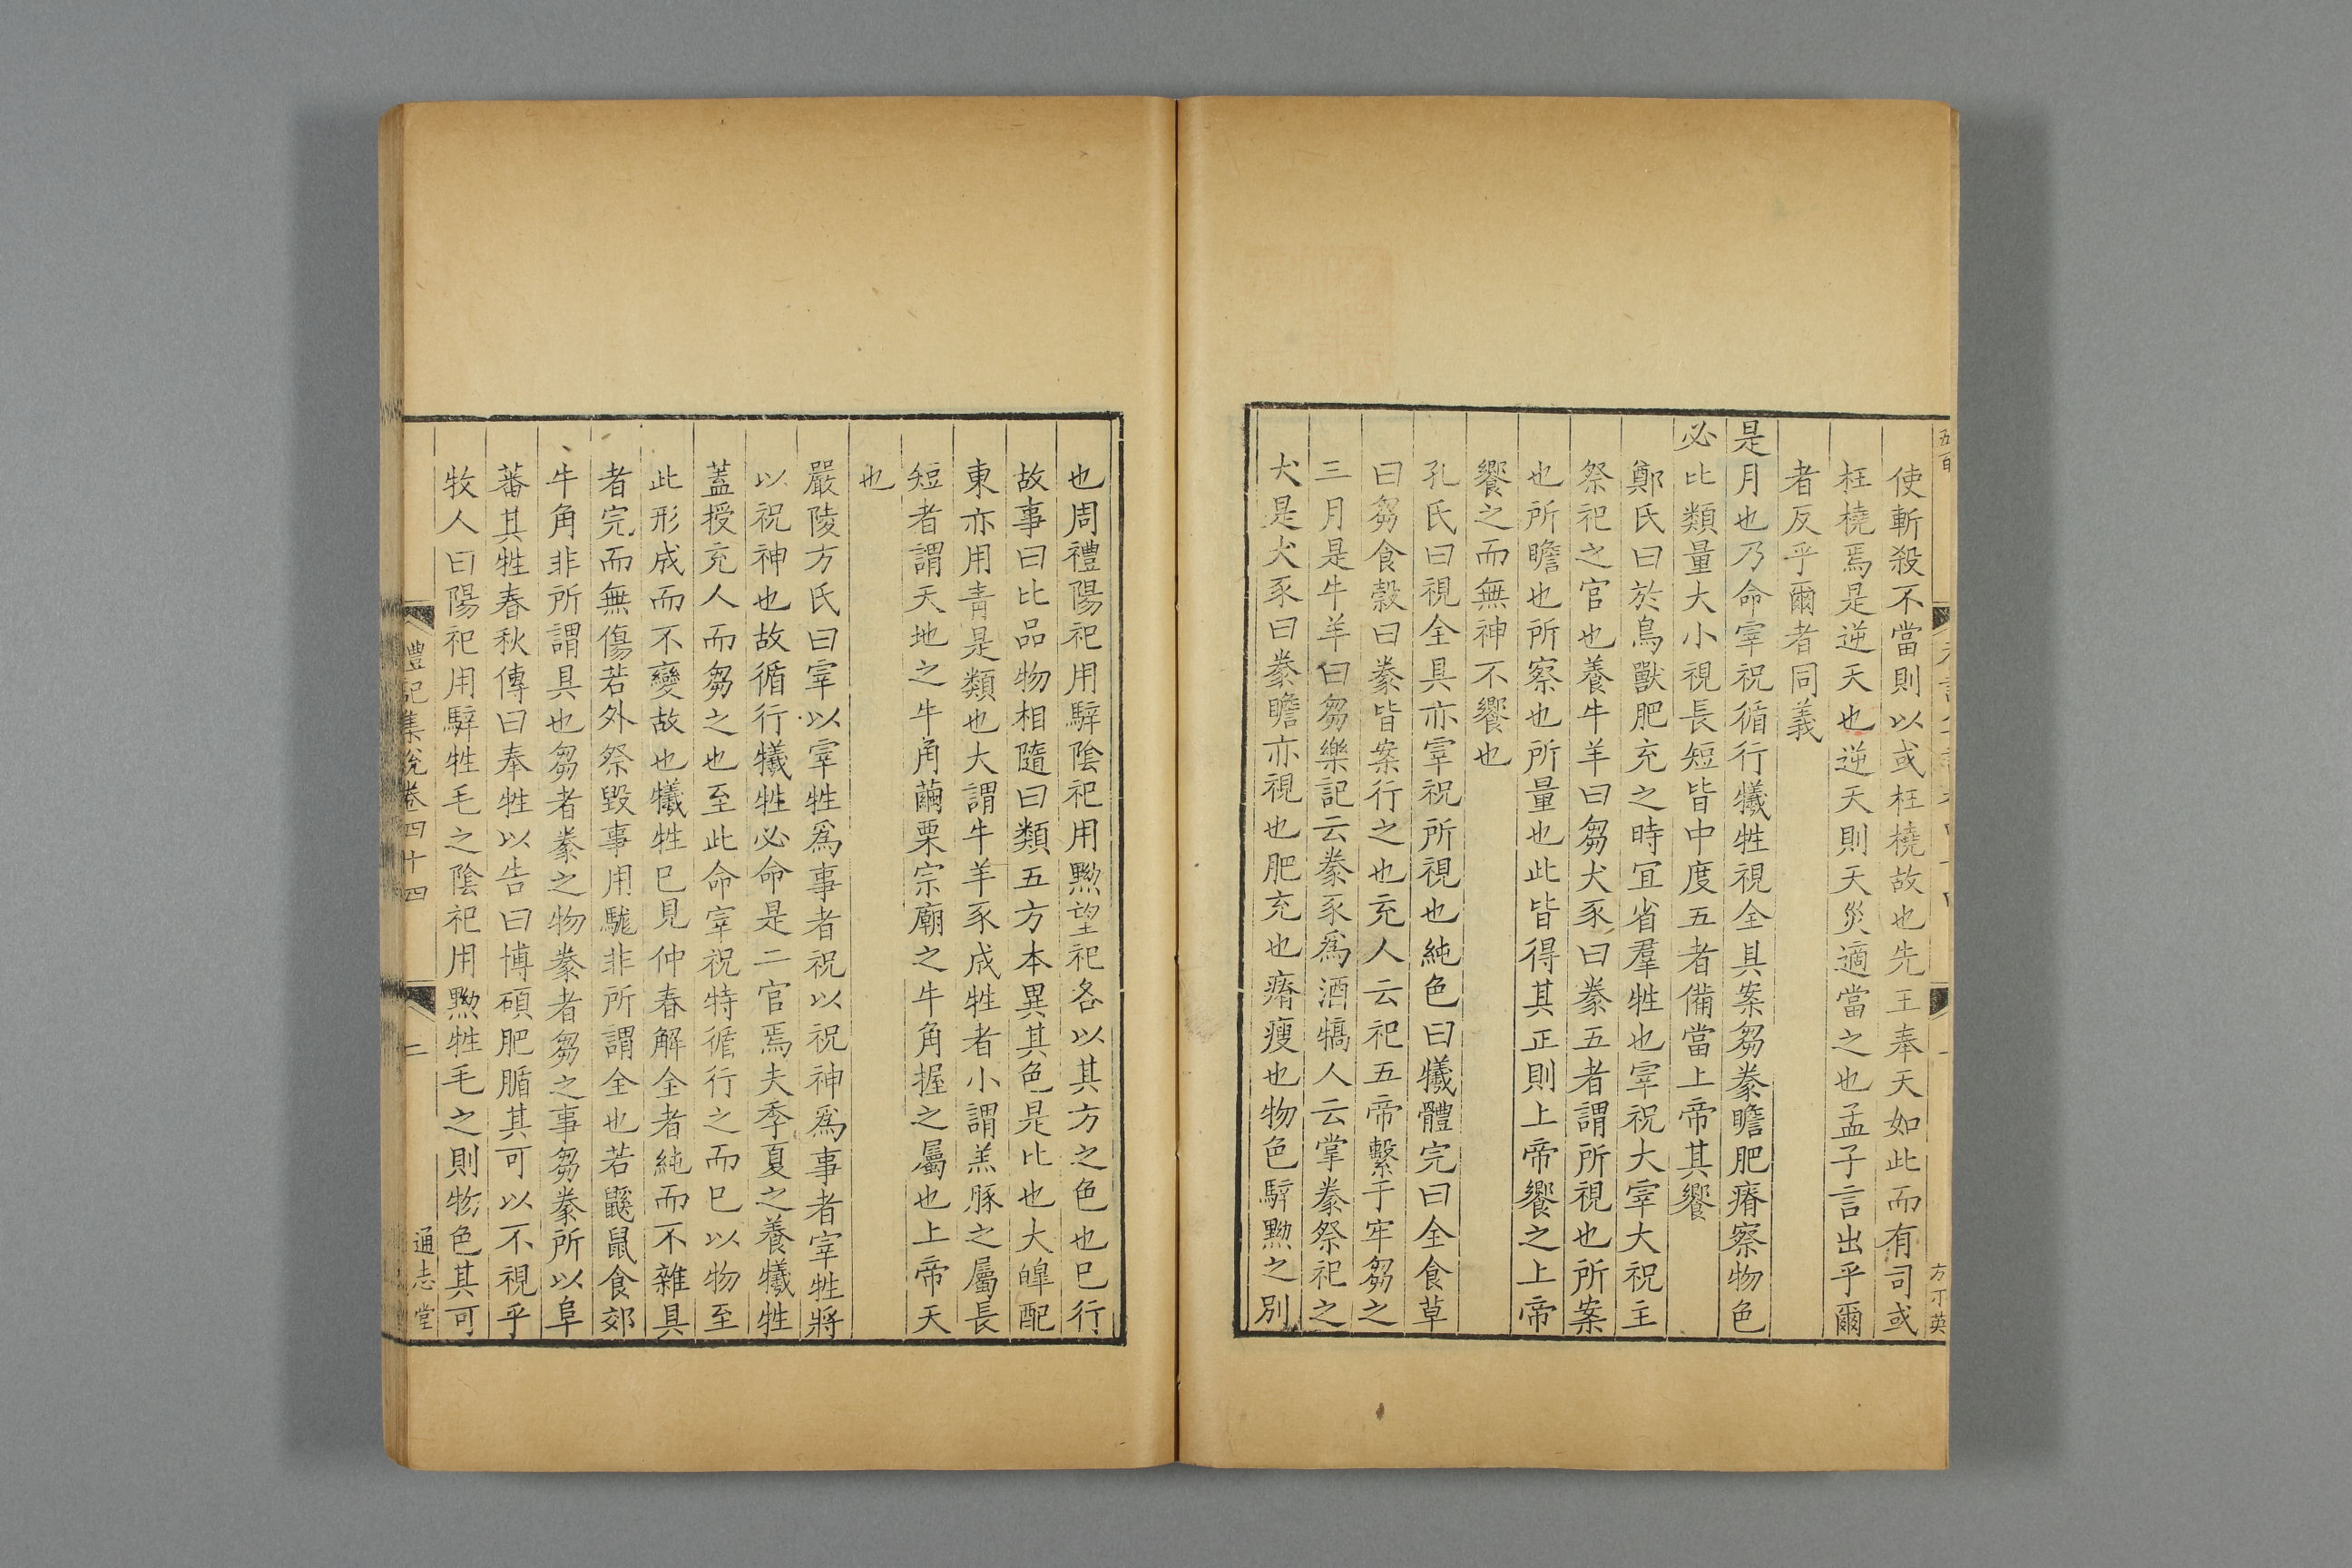 使斬殺不當則以或枉橈故也先王奉天如此而有司或
枉橈焉是逆天也逆天則天災適當之也孟子言出乎爾
者反乎爾者同義
是月也乃命宰祝循行犧牲視全具案芻豢瞻肥瘠察物色
必比類量大小視長短皆中度五者備當上帝其饗
鄭氏曰於鳥獸肥充之時宜省羣牲也宰祝大宰大祝主
祭祀之官也養牛羊曰芻犬豕曰豢五者謂所視也所案
也所瞻也所察也所量也此皆得其正則上帝饗之上帝
饗之而無神不饗也
孔氏曰視全具亦宰祝所視也純色曰犧體完曰全食草
曰芻食穀曰豢皆案行之也充人云祀五帝繫于牢芻之
三月是牛羊曰芻樂記云豢豕爲酒犒人云掌豢祭祀之
犬是犬豕曰豢瞻亦視也肥充也瘠瘦也物色騂黝之別
也周禮陽祀用騂陰祀用黝望祀各以其方之色也巳行
故事曰比品物相隨曰類五方本異其色是比也大皥配
東亦用青是類也大謂牛羊豕成牲者小謂羔豚之屬長
短者謂天地之牛角繭栗宗廟之牛角握之屬也上帝天
也
嚴陵方氏曰宰以宰牲爲事者祝以祝神爲事者宰牲將
以祝神也故循行犧牲必命是二官焉夫季夏之養犧牲
蓋授充人而芻之也至此命宰祝特循行之而巳以物至
此形成而不變故也犧牲巳見仲春解全者純而不雜具
者完而無傷若外祭毀事用駹非所謂全也若鼷鼠食郊
牛角非所謂具也芻者豢之物豢者芻之事芻豢所以阜
蕃其牲春秋傳曰奉牲以告曰博碩肥腯其可以不視乎
牧人曰陽祀用騂牲毛之陰祀用黝牲毛之則物色其可
禮記集說卷四十四 二 通志堂